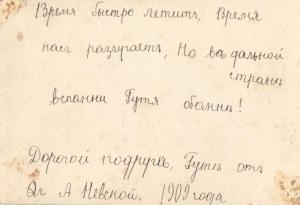 Время быстро летитъ, Время
насъ разлучаетъ, Но въ дальной
странѣ
вспомни Гутя обомнѣ!
Дорогой подругѣ, Гутѣ отъ
А Невской. 1909 года